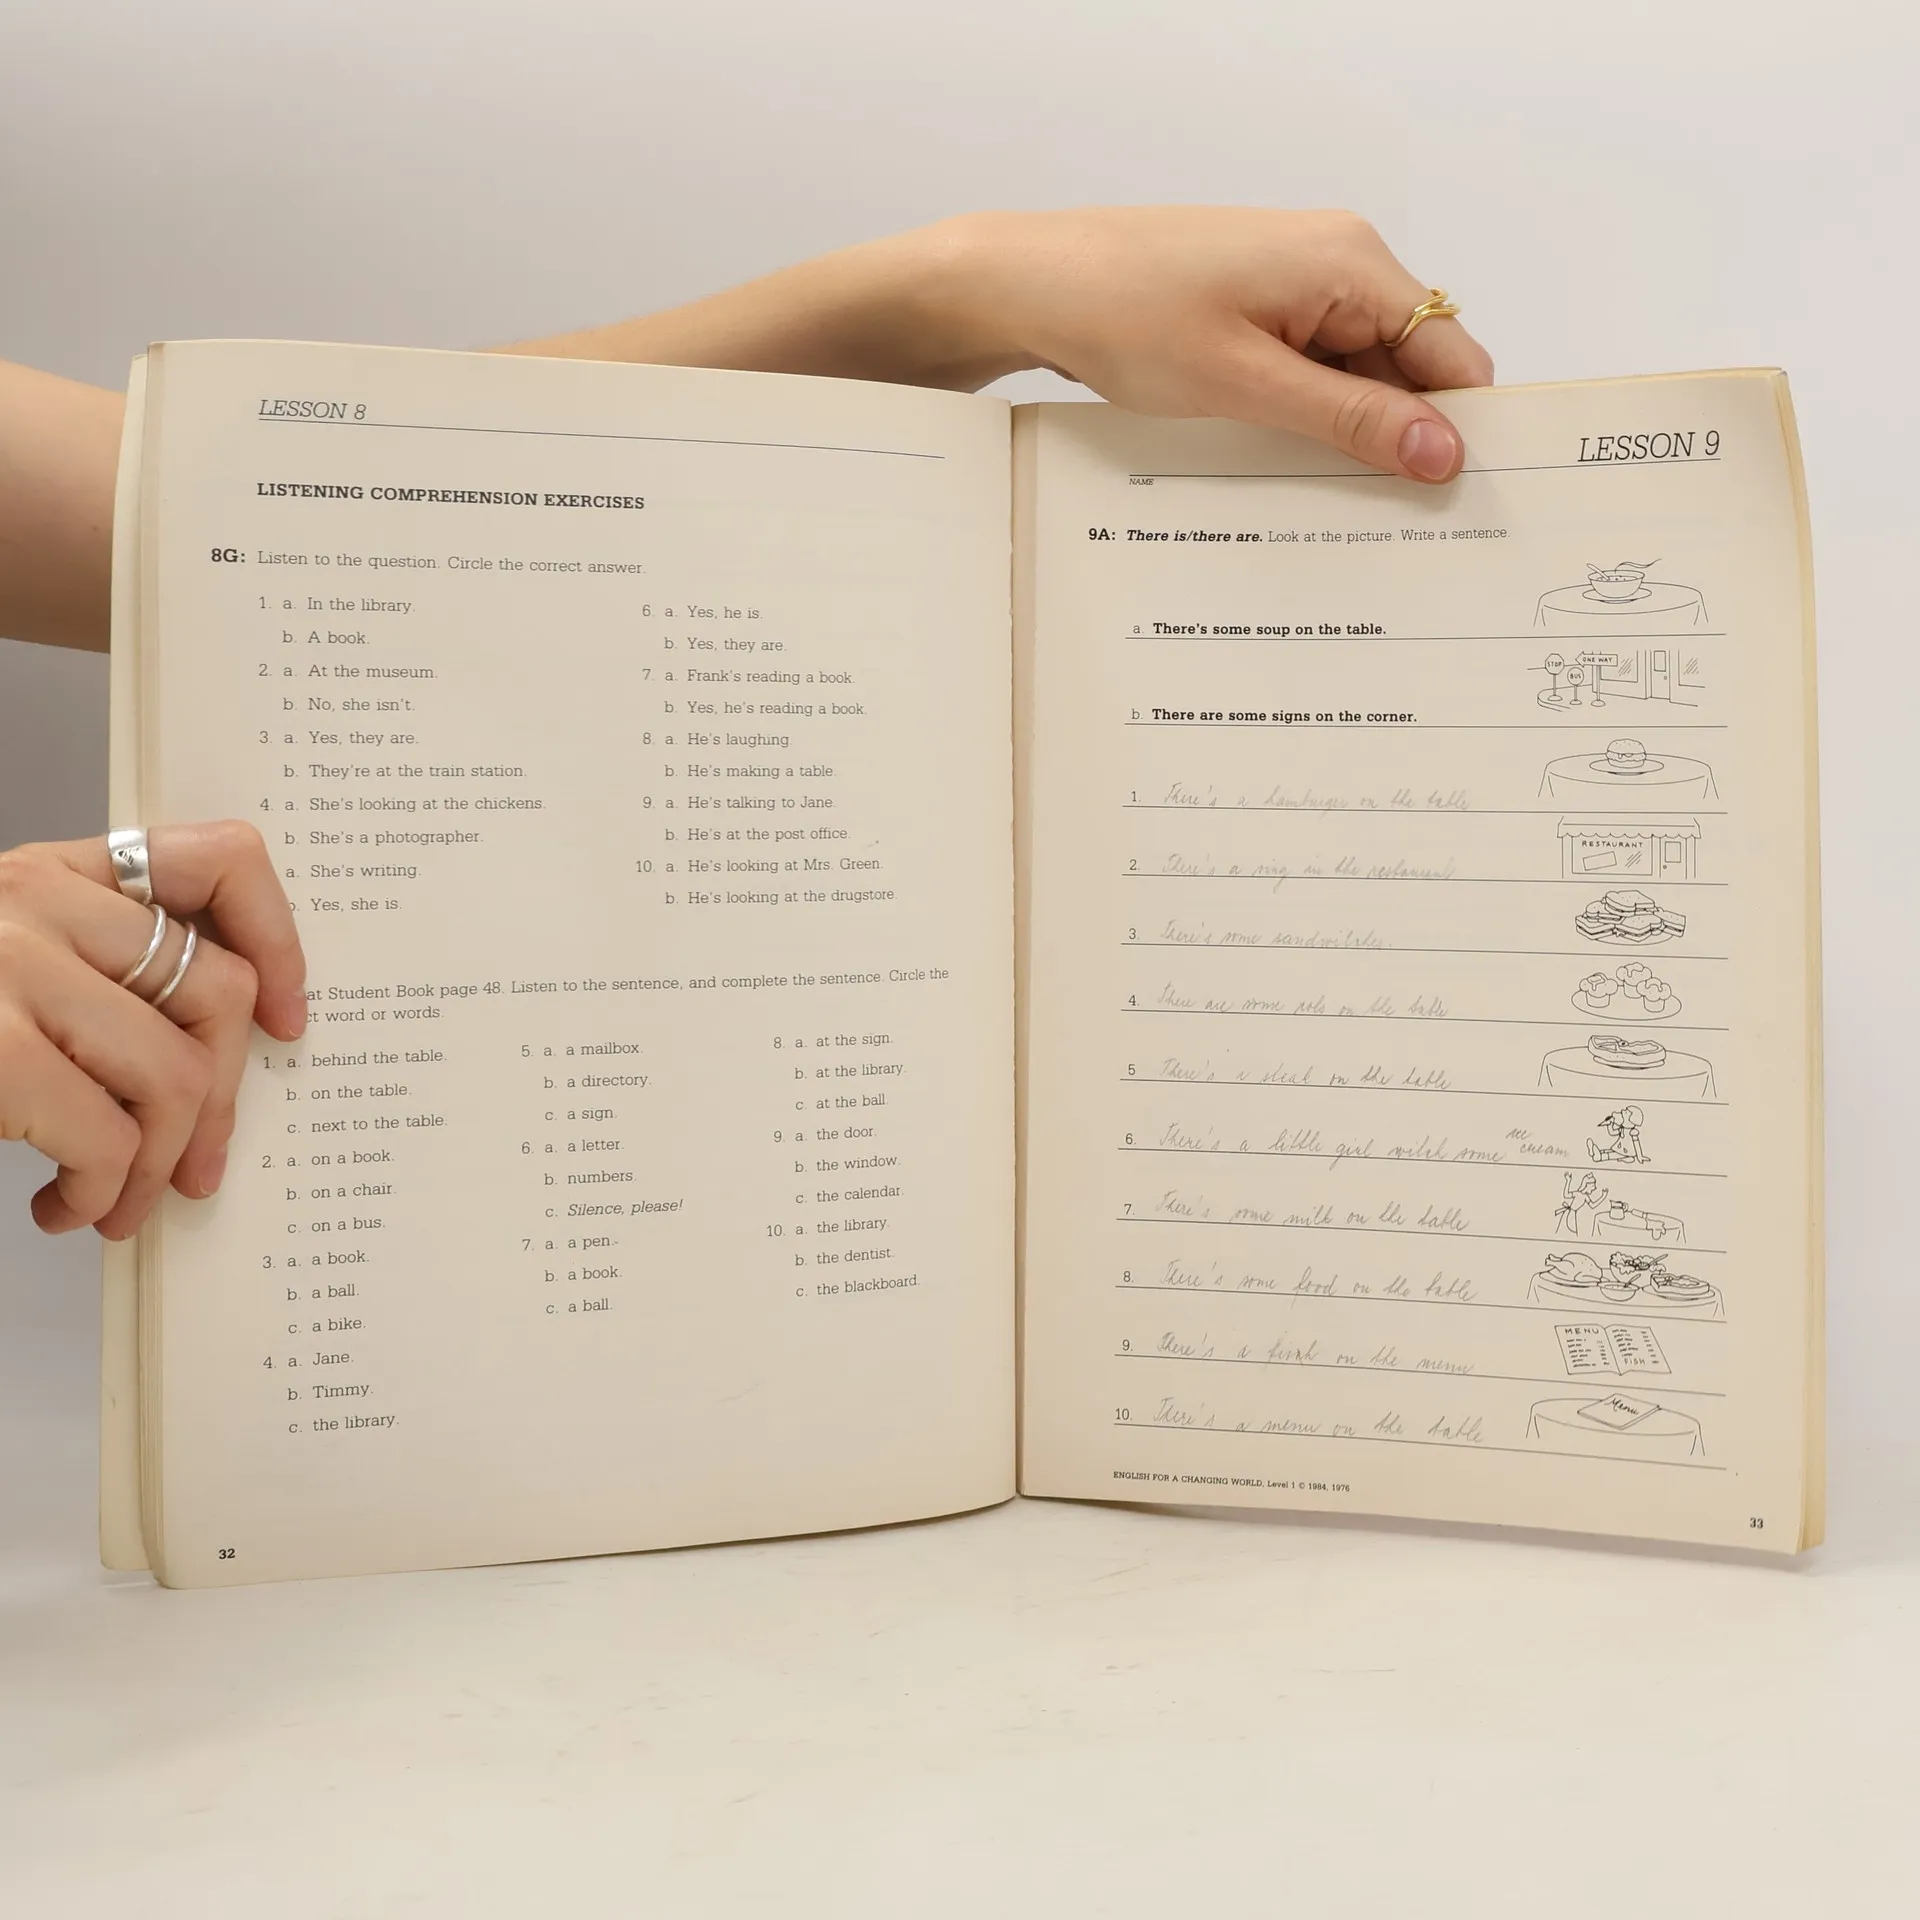 LESSON 8
LISTENING COMPREHENSION EXERCISES
8G: Listen to the question. Circle the correct answer.
1. a. In the library.
b. A book.
2. a. At the museum.
b. No, she isn't.
3. a. Yes, they are.
b. They're at the train station.
4. a. She's looking at the chickens.
b. She's a photographer.
a. She's writing.
b. Yes, she is.
6. a. Yes, he is.
b. Yes, they are.
7. a. Frank's reading a book.
b. Yes, he's reading a book.
8. a. He's laughing.
b. He's making a table.
9. a. He's talking to Jane.
b. He's at the post office.
10. a. He's looking at Mrs. Green.
b. He's looking at the drugstore.
at Student Book page 48. Listen to the sentence, and complete the sentence. Circle the
ct word or words.
1. a. behind the table.
b. on the table.
c. next to the table.
2. a. on a book.
b. on a chair.
c. on a bus.
3. a. a book.
b. a ball.
c. a bike.
4. a. Jane.
b. Timmy.
c. the library.
5. a. a mailbox.
b. a directory.
c. a sign.
6. a. a letter.
b. numbers.
c. Silence, please!
7. a. a pen.
b. a book.
c. a ball.
8. a. at the sign.
b. at the library.
c. at the ball.
9. a. the door.
b. the window.
c. the calendar.
10. a. the library.
b. the dentist.
c. the blackboard.
32
LESSON 9
NAME
9A: There is/there are. Look at the picture. Write a sentence.
a. There's some soup on the table.
STOP
BUS
ONE WAY
b. There are some signs on the corner.
1. There's a hamburger on the table
RESTAURANT
2. There's a in the restaurant
3. There's some
4. There are some on the table
5 There's a on the table
6. There's a little girl some cream
7. There's some milk on the table
8. There's some food on the table
MENU
FISH
9. There's a on the menu
Menu
10. There's a menu on the table
ENGLISH FOR A CHANGING WORLD, Level 1 © 1984, 1976
33